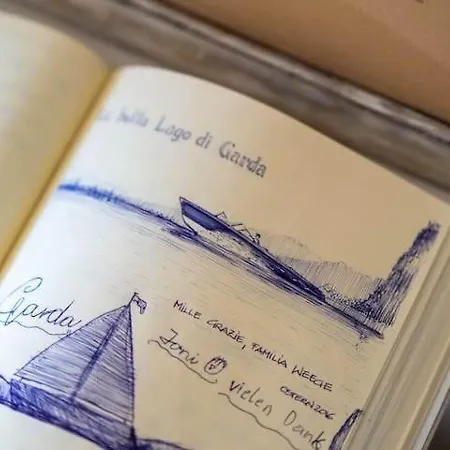 La bella Lago di Garda
Garda
MILLE GRAZIE, FAMILIA WEEGE
Toni
vielen Dank